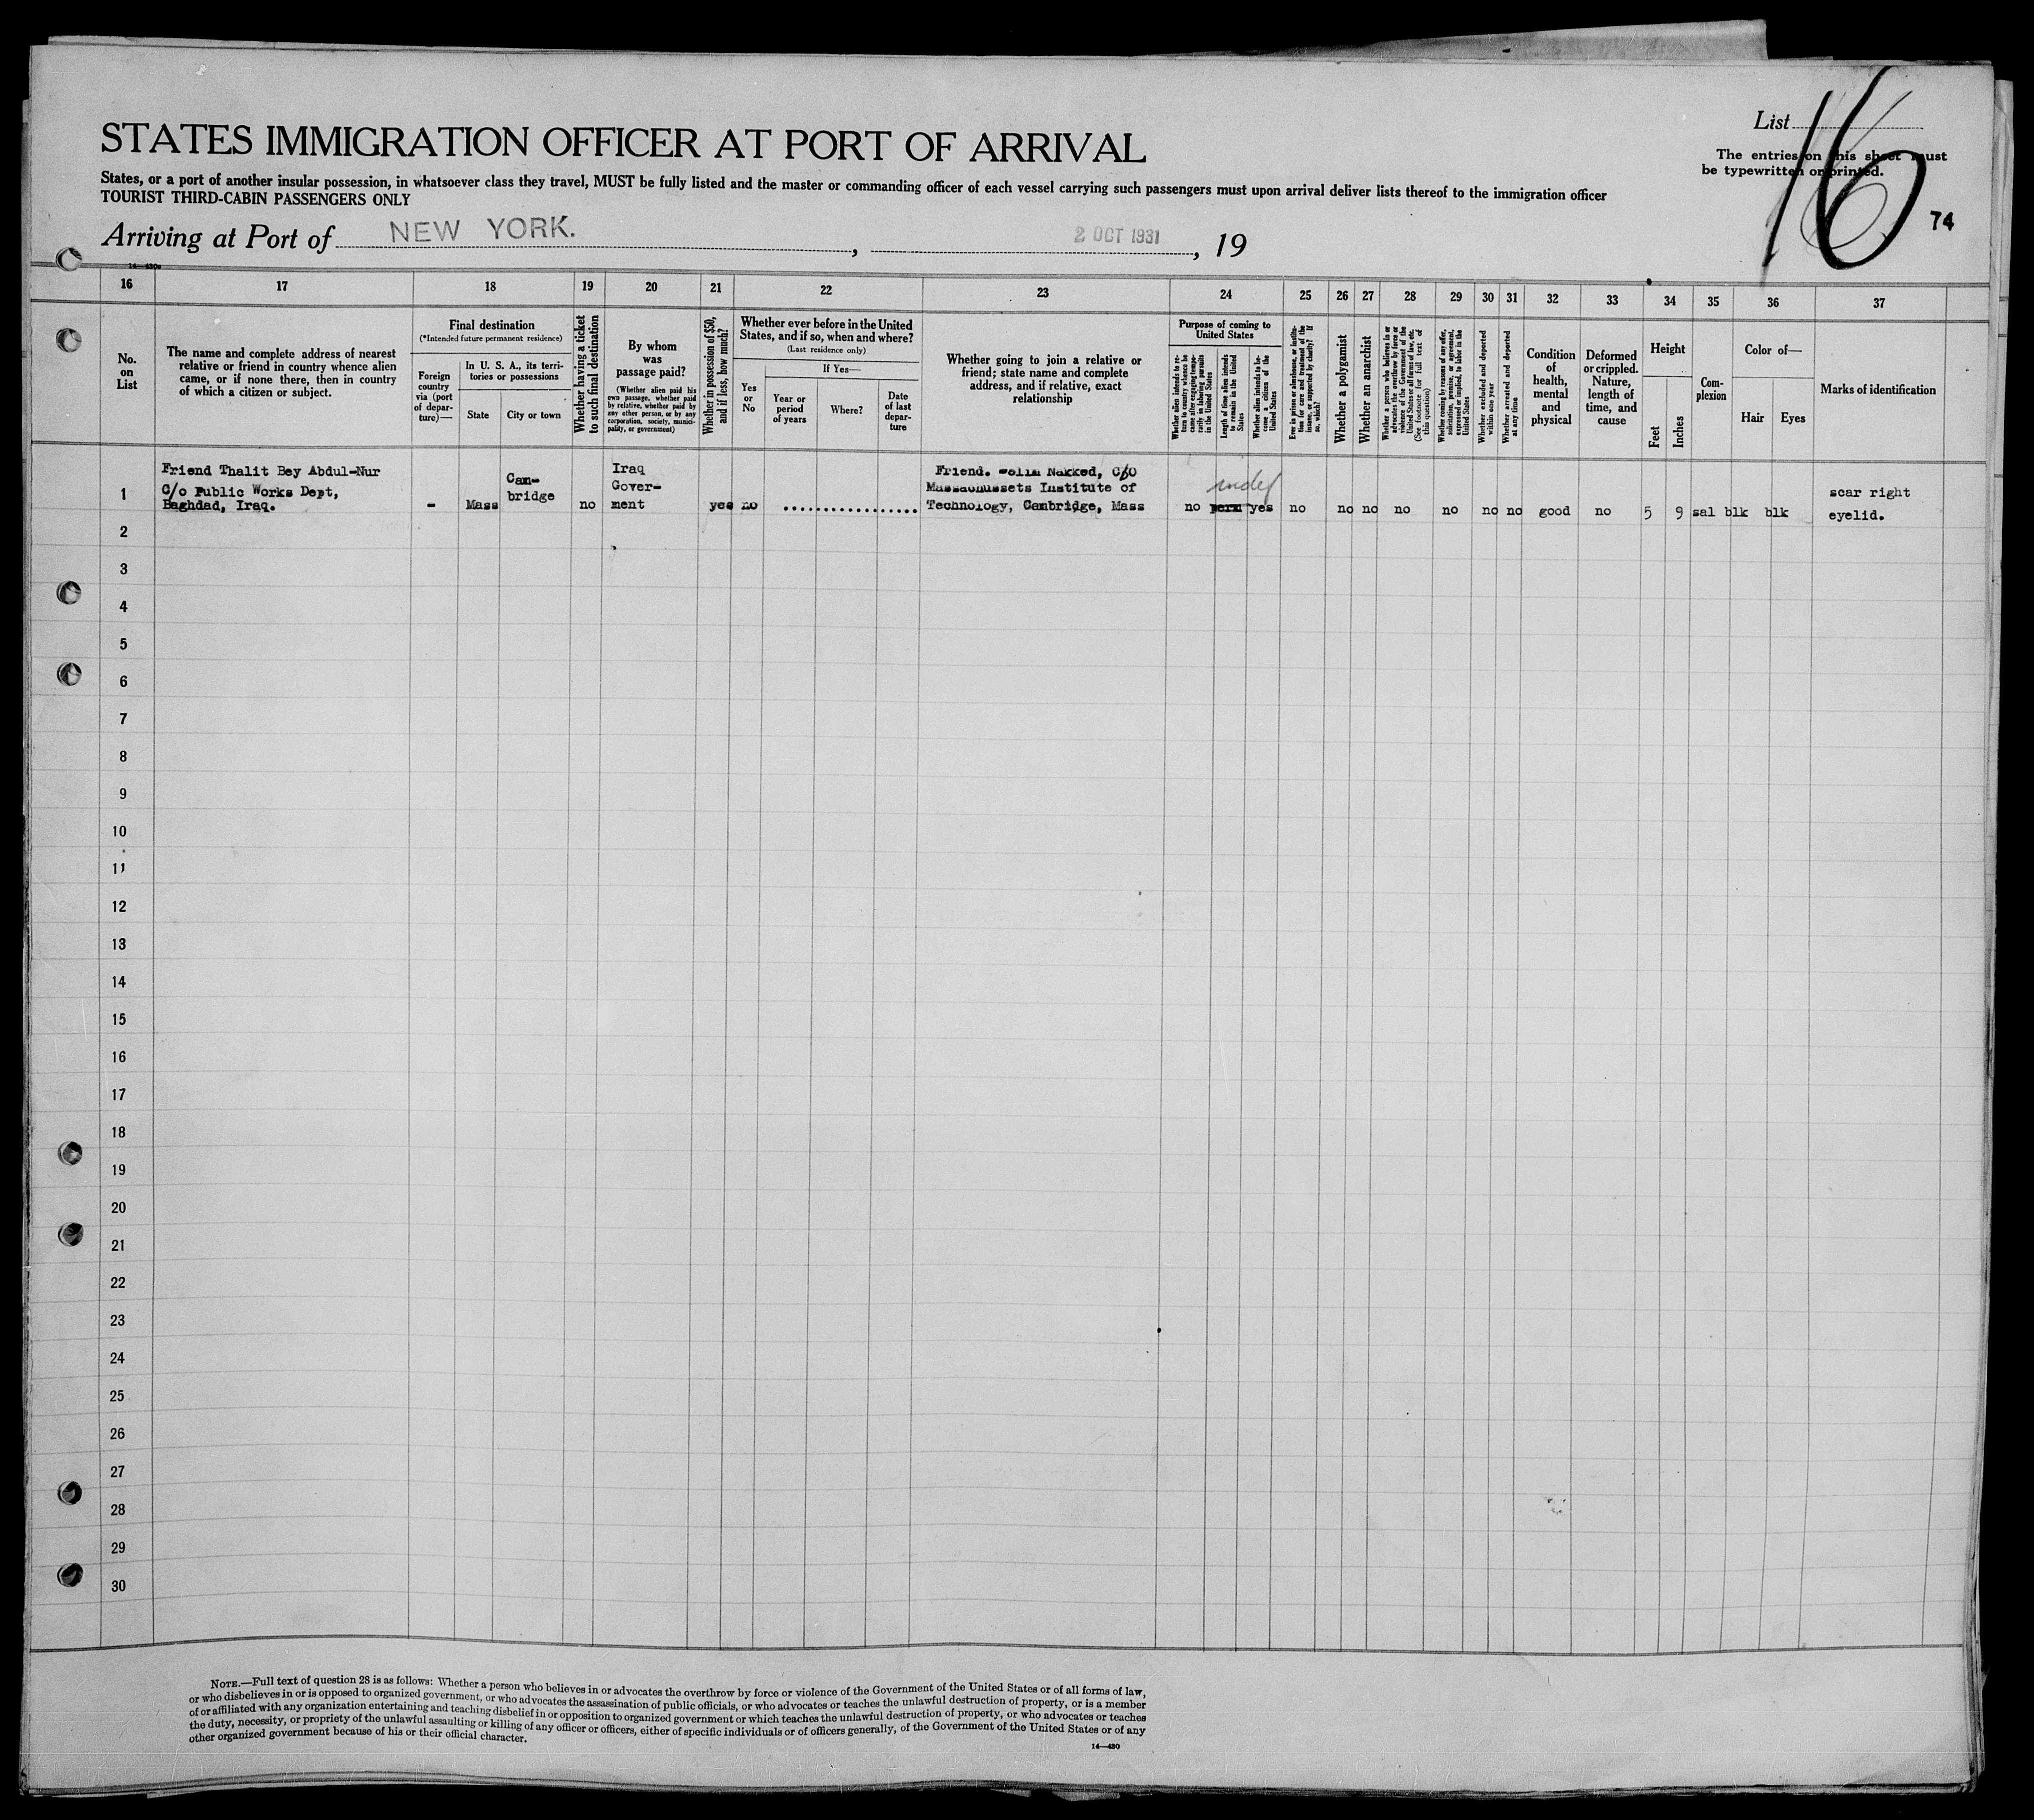 STATES IMMIGRATION OFFICER AT PORT OF ARRIVAL
States, or a port of another insular possession, in whatsoever class they travel, MUST be fully listed and the master or commanding officer of each vessel carrying such passengers must upon arrival deliver lists thereof to the immigration officer
TOURIST THIRD-CABIN PASSENGERS ONLY
List 16
The entries on this sheet must
be typewritten or printed.
74
Arriving at Port of NEW YORK. , 2 OCT 1931 , 19
16 17 18 19 20 21 22 23 24 25 26 27 28 29 30 31 32 33 34 35 36 37
No.
on
List
The name and complete address of nearest
relative or friend in country whence alien
came, or if none there, then in country
of which a citizen or subject.
Final destination
(*Intended future permanent residence)
Foreign
country
via (port
of depar-
ture)—
In U. S. A., its terri-
tories or possessions
State
City or town
Whether having a ticket
to such final destination
By whom
was
passage paid?
(Whether alien paid his
own passage, whether paid
by relative, whether paid by
any other person, or by any
corporation, society, munici-
pality, or government)
Whether in possession of $50,
and if less, how much?
Whether ever before in the United
States, and if so, when and where?
(Last residence only)
Yes
or
No
If Yes—
Year or
period
of years
Where?
Date
of last
depar-
ture
Whether going to join a relative or
friend; state name and complete
address, and if relative, exact
relationship
Purpose of coming to
United States
Whether alien intends to re-
turn to country whence he
came after engaging tempo-
rarily in laboring pursuits
in the United States
Length of time alien intends
to remain in the United
States
Whether alien intends to be-
come a citizen of the
United States
Ever in prison or almshouse, or institu-
tion for care and treatment of the
insane, or supported by charity? If
so, which?
Whether a polygamist
Whether an anarchist
Whether a person who believes in or
advocates the overthrow by force or
violence of the Government of the
United States or all forms of law, etc.
(See footnote for full text of
this question)
Whether coming by reason of any offer,
solicitation, promise, or agreement,
expressed or implied, to labor in the
United States
Whether excluded and deported
within one year
Whether arrested and deported
at any time
Condition
of
health,
mental
and
physical
Deformed
or crippled.
Nature,
length of
time, and
cause
Height
Feet
Inches
Com-
plexion
Color of—
Hair
Eyes
Marks of identification
1
Friend Thalit Bey Abdul-Nur
C/o Public Works Dept,
Baghdad, Iraq.
-
Mass
Cam-
bridge
no
Iraq
Gover-
ment
yes
no
.................
Friend. Nakked, C/O
Massachussets Institute of
Technology, Cambridge, Mass
indef
no perm yes no no no no no no no good no 5 9 sal blk blk
scar right
eyelid.
2
3
4
5
6
7
8
9
10
11
12
13
14
15
16
17
18
19
20
21
22
23
24
25
26
27
28
29
30
NOTE.—Full text of question 28 is as follows: Whether a person who believes in or advocates the overthrow by force or violence of the Government of the United States or of all forms of law,
or who disbelieves in or is opposed to organized government, or who advocates the assassination of public officials, or who advocates or teaches the unlawful destruction of property, or is a member
of or affiliated with any organization entertaining and teaching disbelief in or opposition to organized government or which teaches the unlawful destruction of property, or who advocates or teaches
the duty, necessity, or propriety of the unlawful assaulting or killing of any officer or officers, either of specific individuals or of officers generally, of the Government of the United States or of any
other organized government because of his or their official character.
14—430